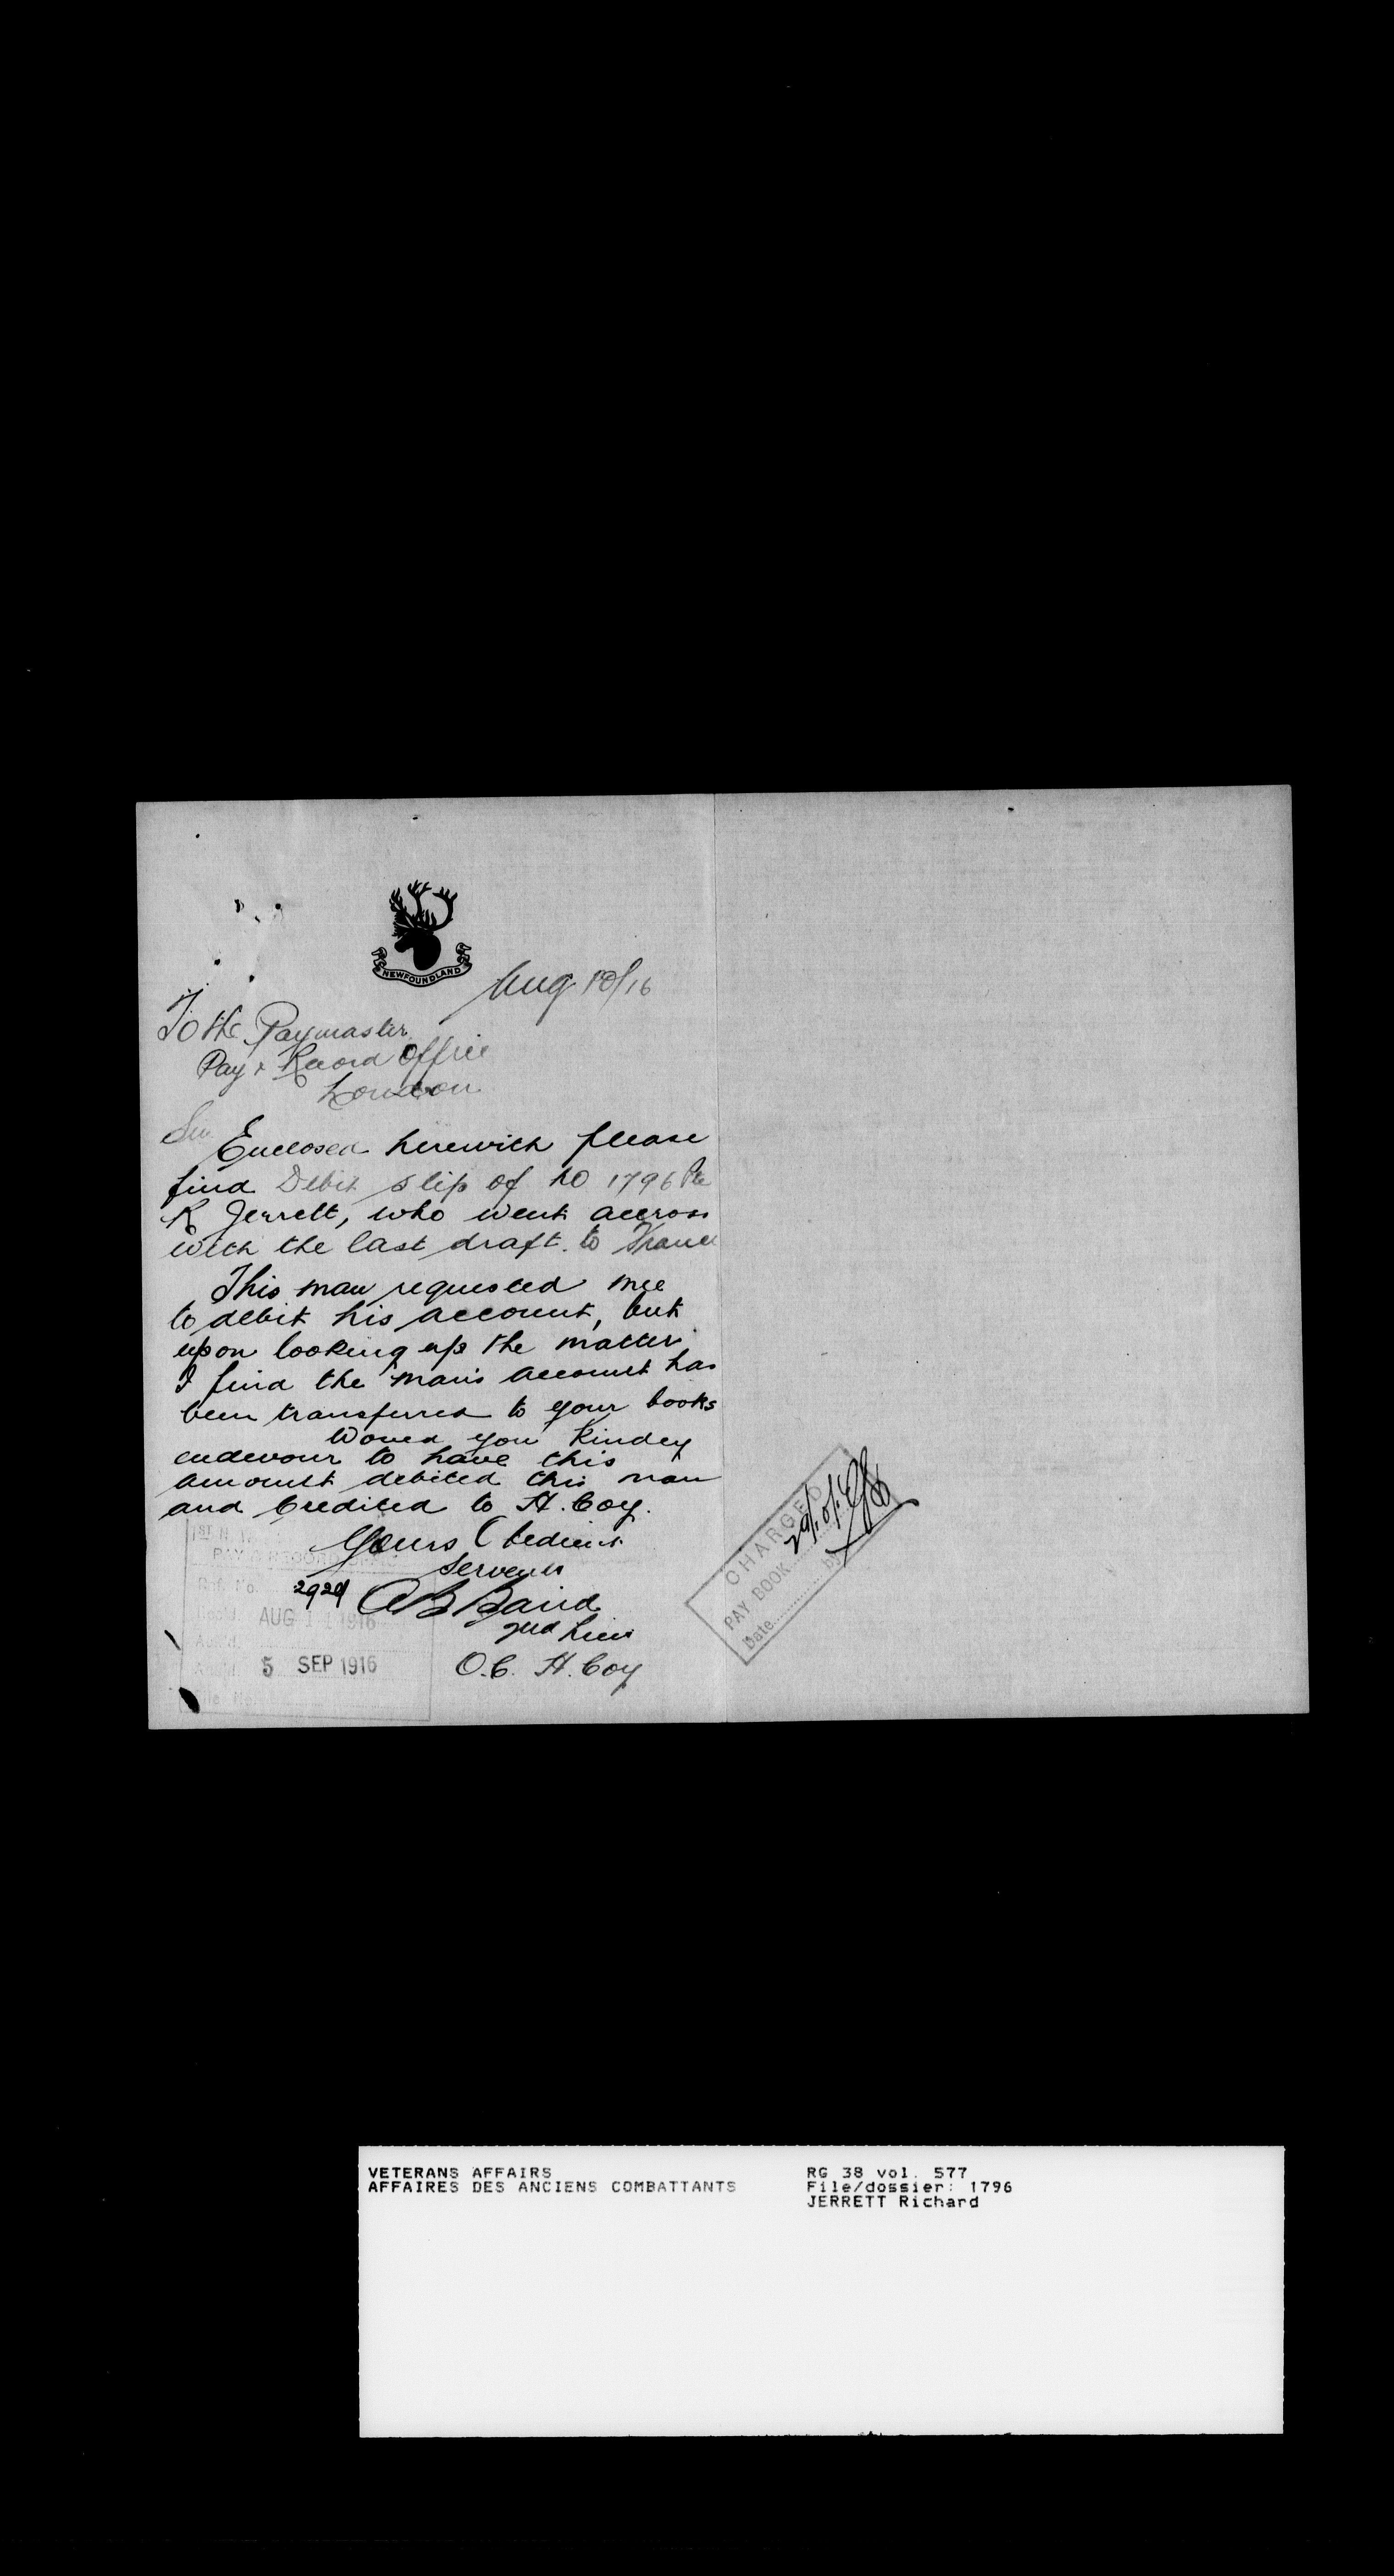 NEWFOUNDLAND
Aug 10/16
To the Paymaster
Pay & Record Office
London
Sir
Enclosed herewith please
find Debit slip of No 1796 Pte
R Jerrett, who went accross
with the last draft. to France
This man requested me
to debit his account, but
upon looking up the matter
I find the man's account has
been transferred to your books
Would you kindly
endevour to have this
amount debited this man
and Credited to H. Coy.
Yours Obedient
Servant
A B Baird
2nd Lieu
O.C. H. Coy
1ST N.
PAY & RECORD
Ref. No. 2920
AUG 11 1916
5 SEP 1916
CHARGED
PAY BOOK
Date by
VETERANS AFFAIRS
AFFAIRES DES ANCIENS COMBATTANTS
RG 38 vol. 577
File/dossier: 1796
JERRETT Richard